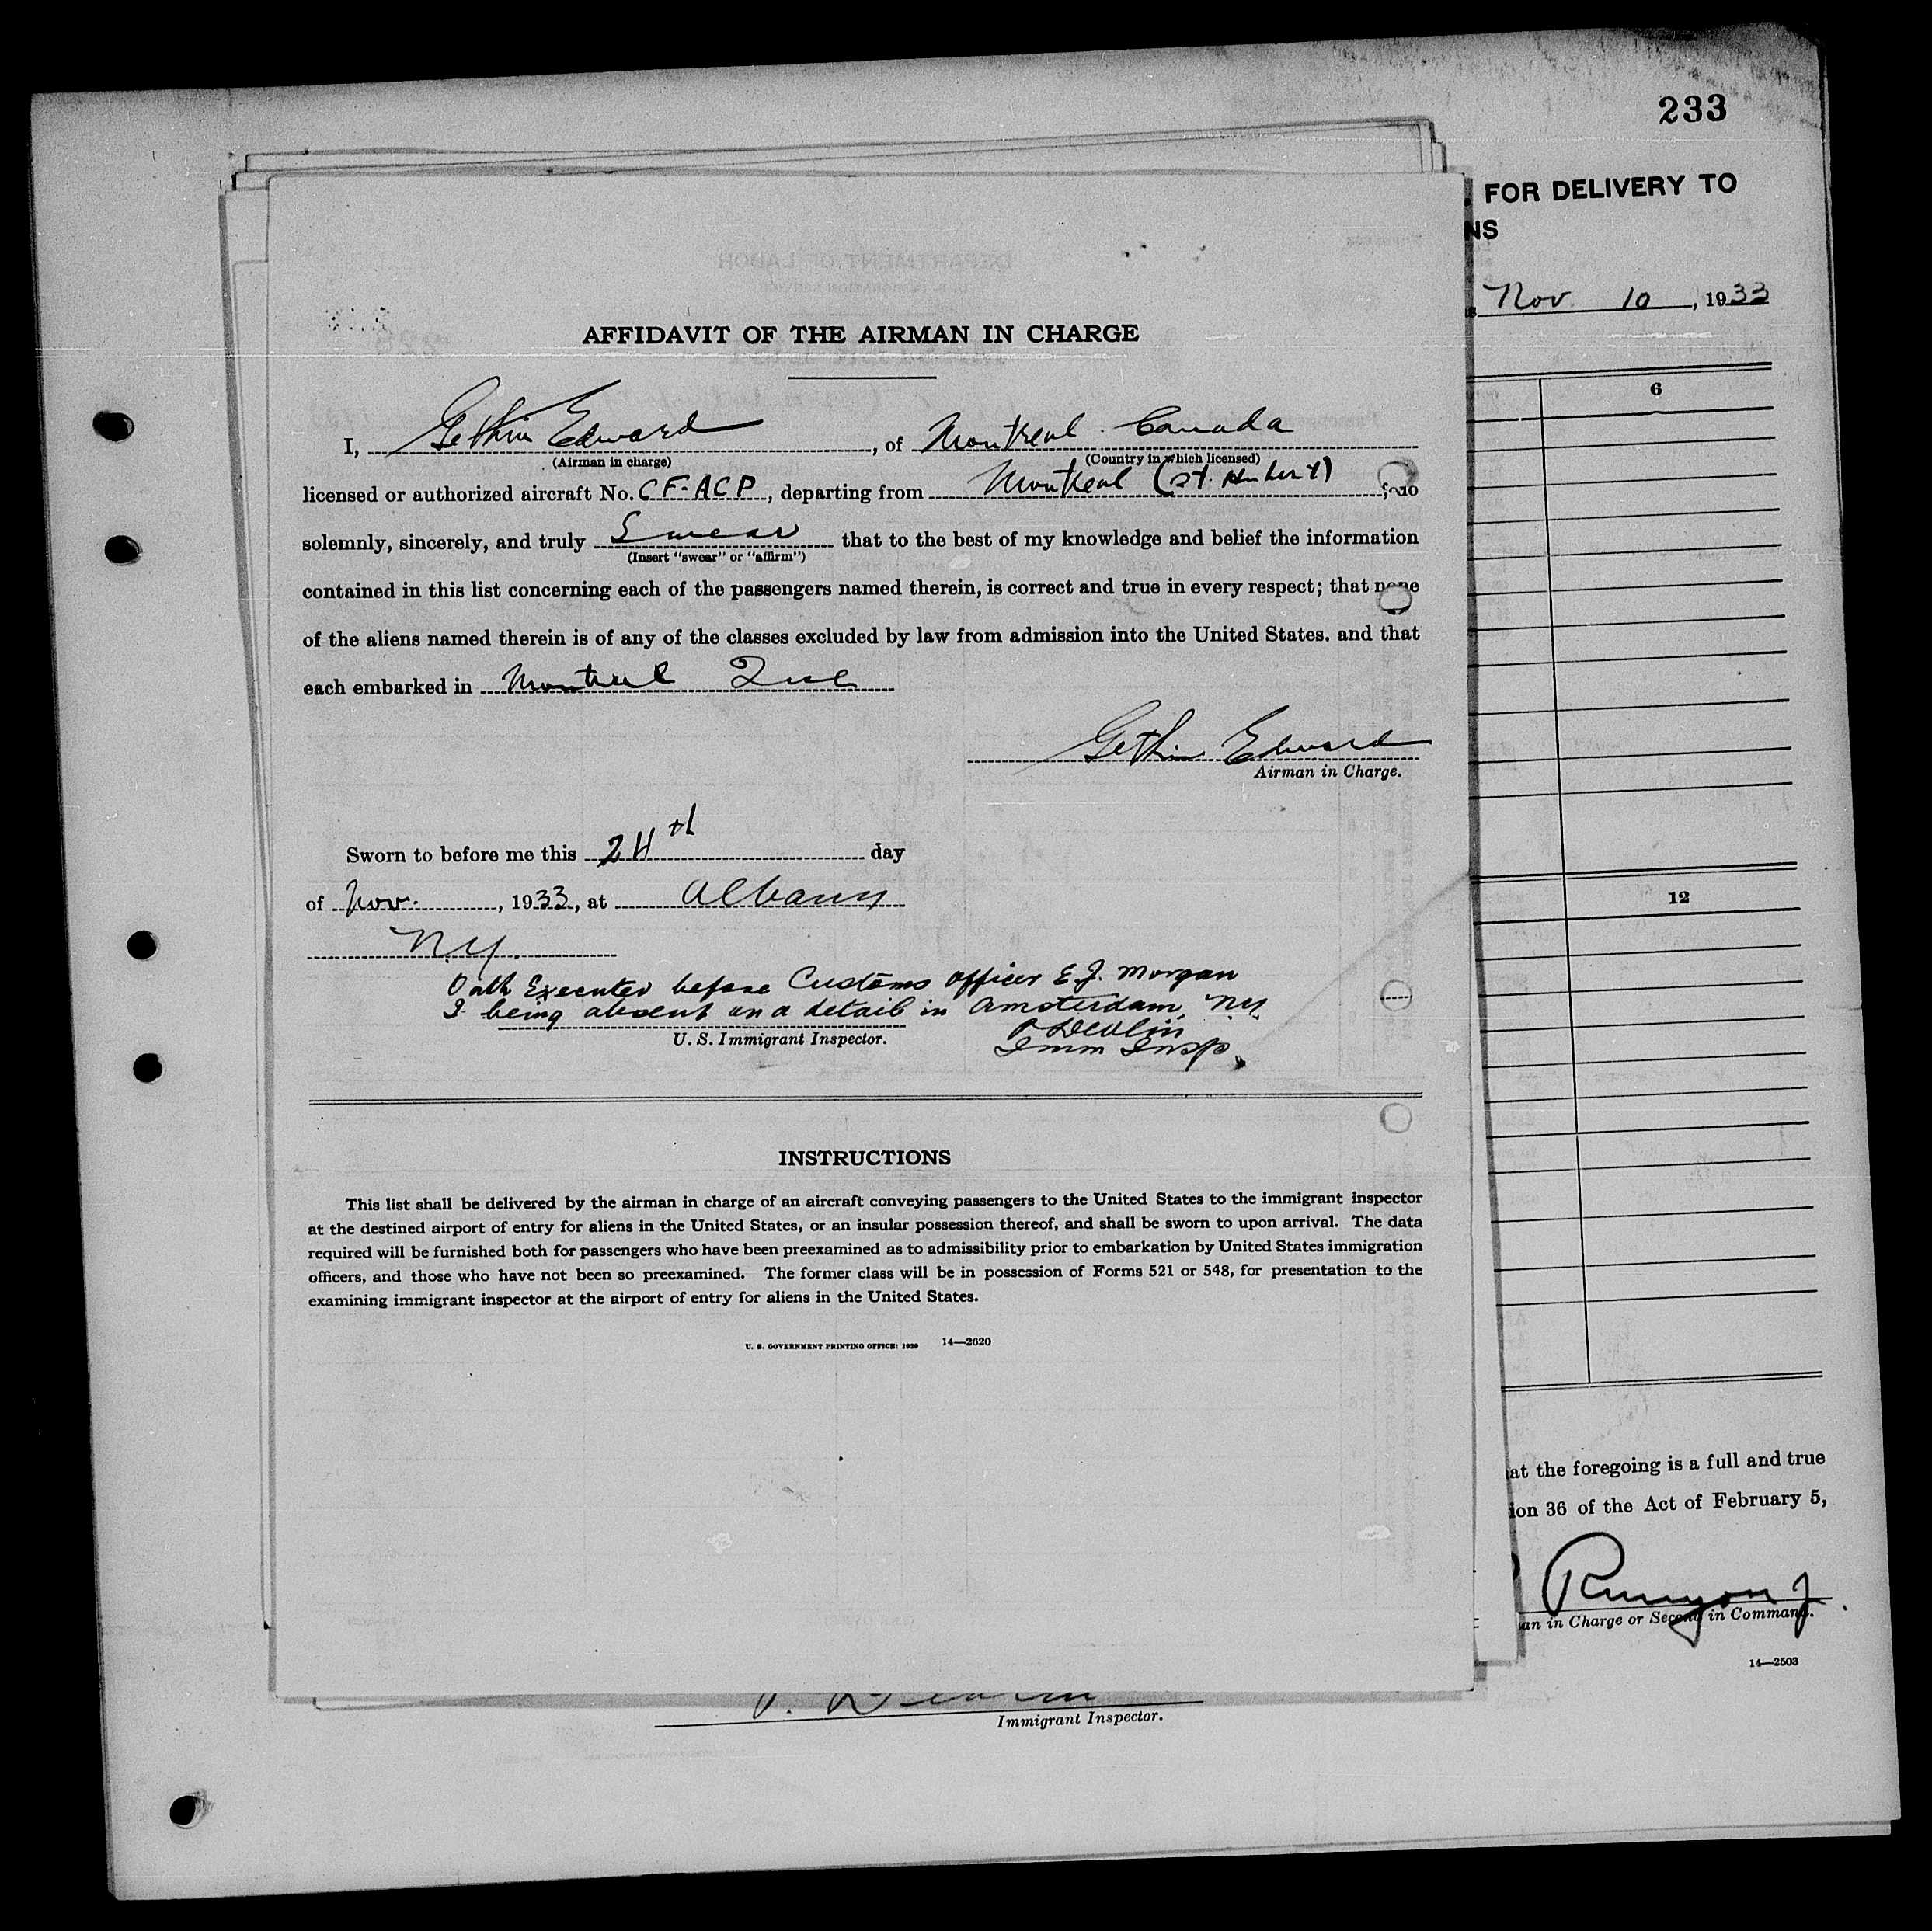 233
FOR DELIVERY TO
NS
Nov 10, 1933
6
12
AFFIDAVIT OF THE AIRMAN IN CHARGE
I, Gethin Edward, of Montreal Canada
(Airman in charge) (Country in which licensed)
licensed or authorized aircraft No. CF-ACP, departing from Montreal (St. Hubert)
solemnly, sincerely, and truly Swear that to the best of my knowledge and belief the information
(Insert "swear" or "affirm")
contained in this list concerning each of the passengers named therein, is correct and true in every respect; that none
of the aliens named therein is of any of the classes excluded by law from admission into the United States. and that
each embarked in Montreal Que
Gethin Edward
Airman in Charge.
Sworn to before me this 24th day
of Nov., 1933, at Albany
NY.
Oath Executed before Customs officer E.J. Morgan
I being absent on a detail in Amsterdam, NY.
P Devlin
U. S. Immigrant Inspector.
Imm Insp.
INSTRUCTIONS
This list shall be delivered by the airman in charge of an aircraft conveying passengers to the United States to the immigrant inspector
at the destined airport of entry for aliens in the United States, or an insular possession thereof, and shall be sworn to upon arrival. The data
required will be furnished both for passengers who have been preexamined as to admissibility prior to embarkation by United States immigration
officers, and those who have not been so preexamined. The former class will be in possession of Forms 521 or 548, for presentation to the
examining immigrant inspector at the airport of entry for aliens in the United States.
U. S. GOVERNMENT PRINTING OFFICE: 1929 14—2620
at the foregoing is a full and true
ion 36 of the Act of February 5,
Runyon J
an in Charge or Second in Command.
14—2503
P. Devlin
Immigrant Inspector.